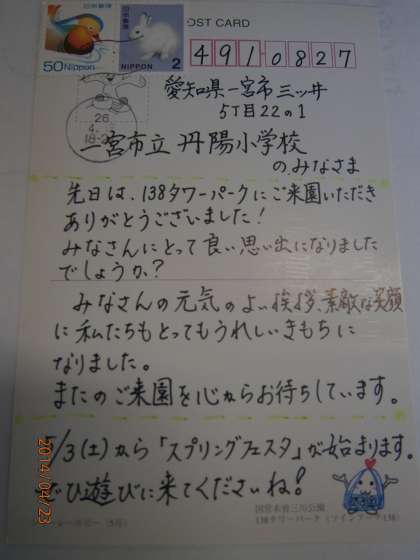 日本郵便
日本郵便
50 NIPPON
NIPPON 2
POST CARD
4910827
26
4.
18-2
愛知県一宮市三ッ井
5丁目22の1
一宮市立 丹陽小学校
のみなさま
先日は、138タワーパークにご来園いただき
ありがとうございました!
みなさんにとって良い思い出になりました
でしょうか?
みなさんの元気のよい挨拶、素敵な笑顔
に私たちもとってもうれしいきもちに
なりました。
またのご来園を心からお待ちしています。
5/3(土)から「スプリングフェスタ」が始まります。
ぜひ遊びに来てくださいね!
国営木曽三川公園
138タワーパーク(ツインアーチ138)
(5月)
2014/04/23